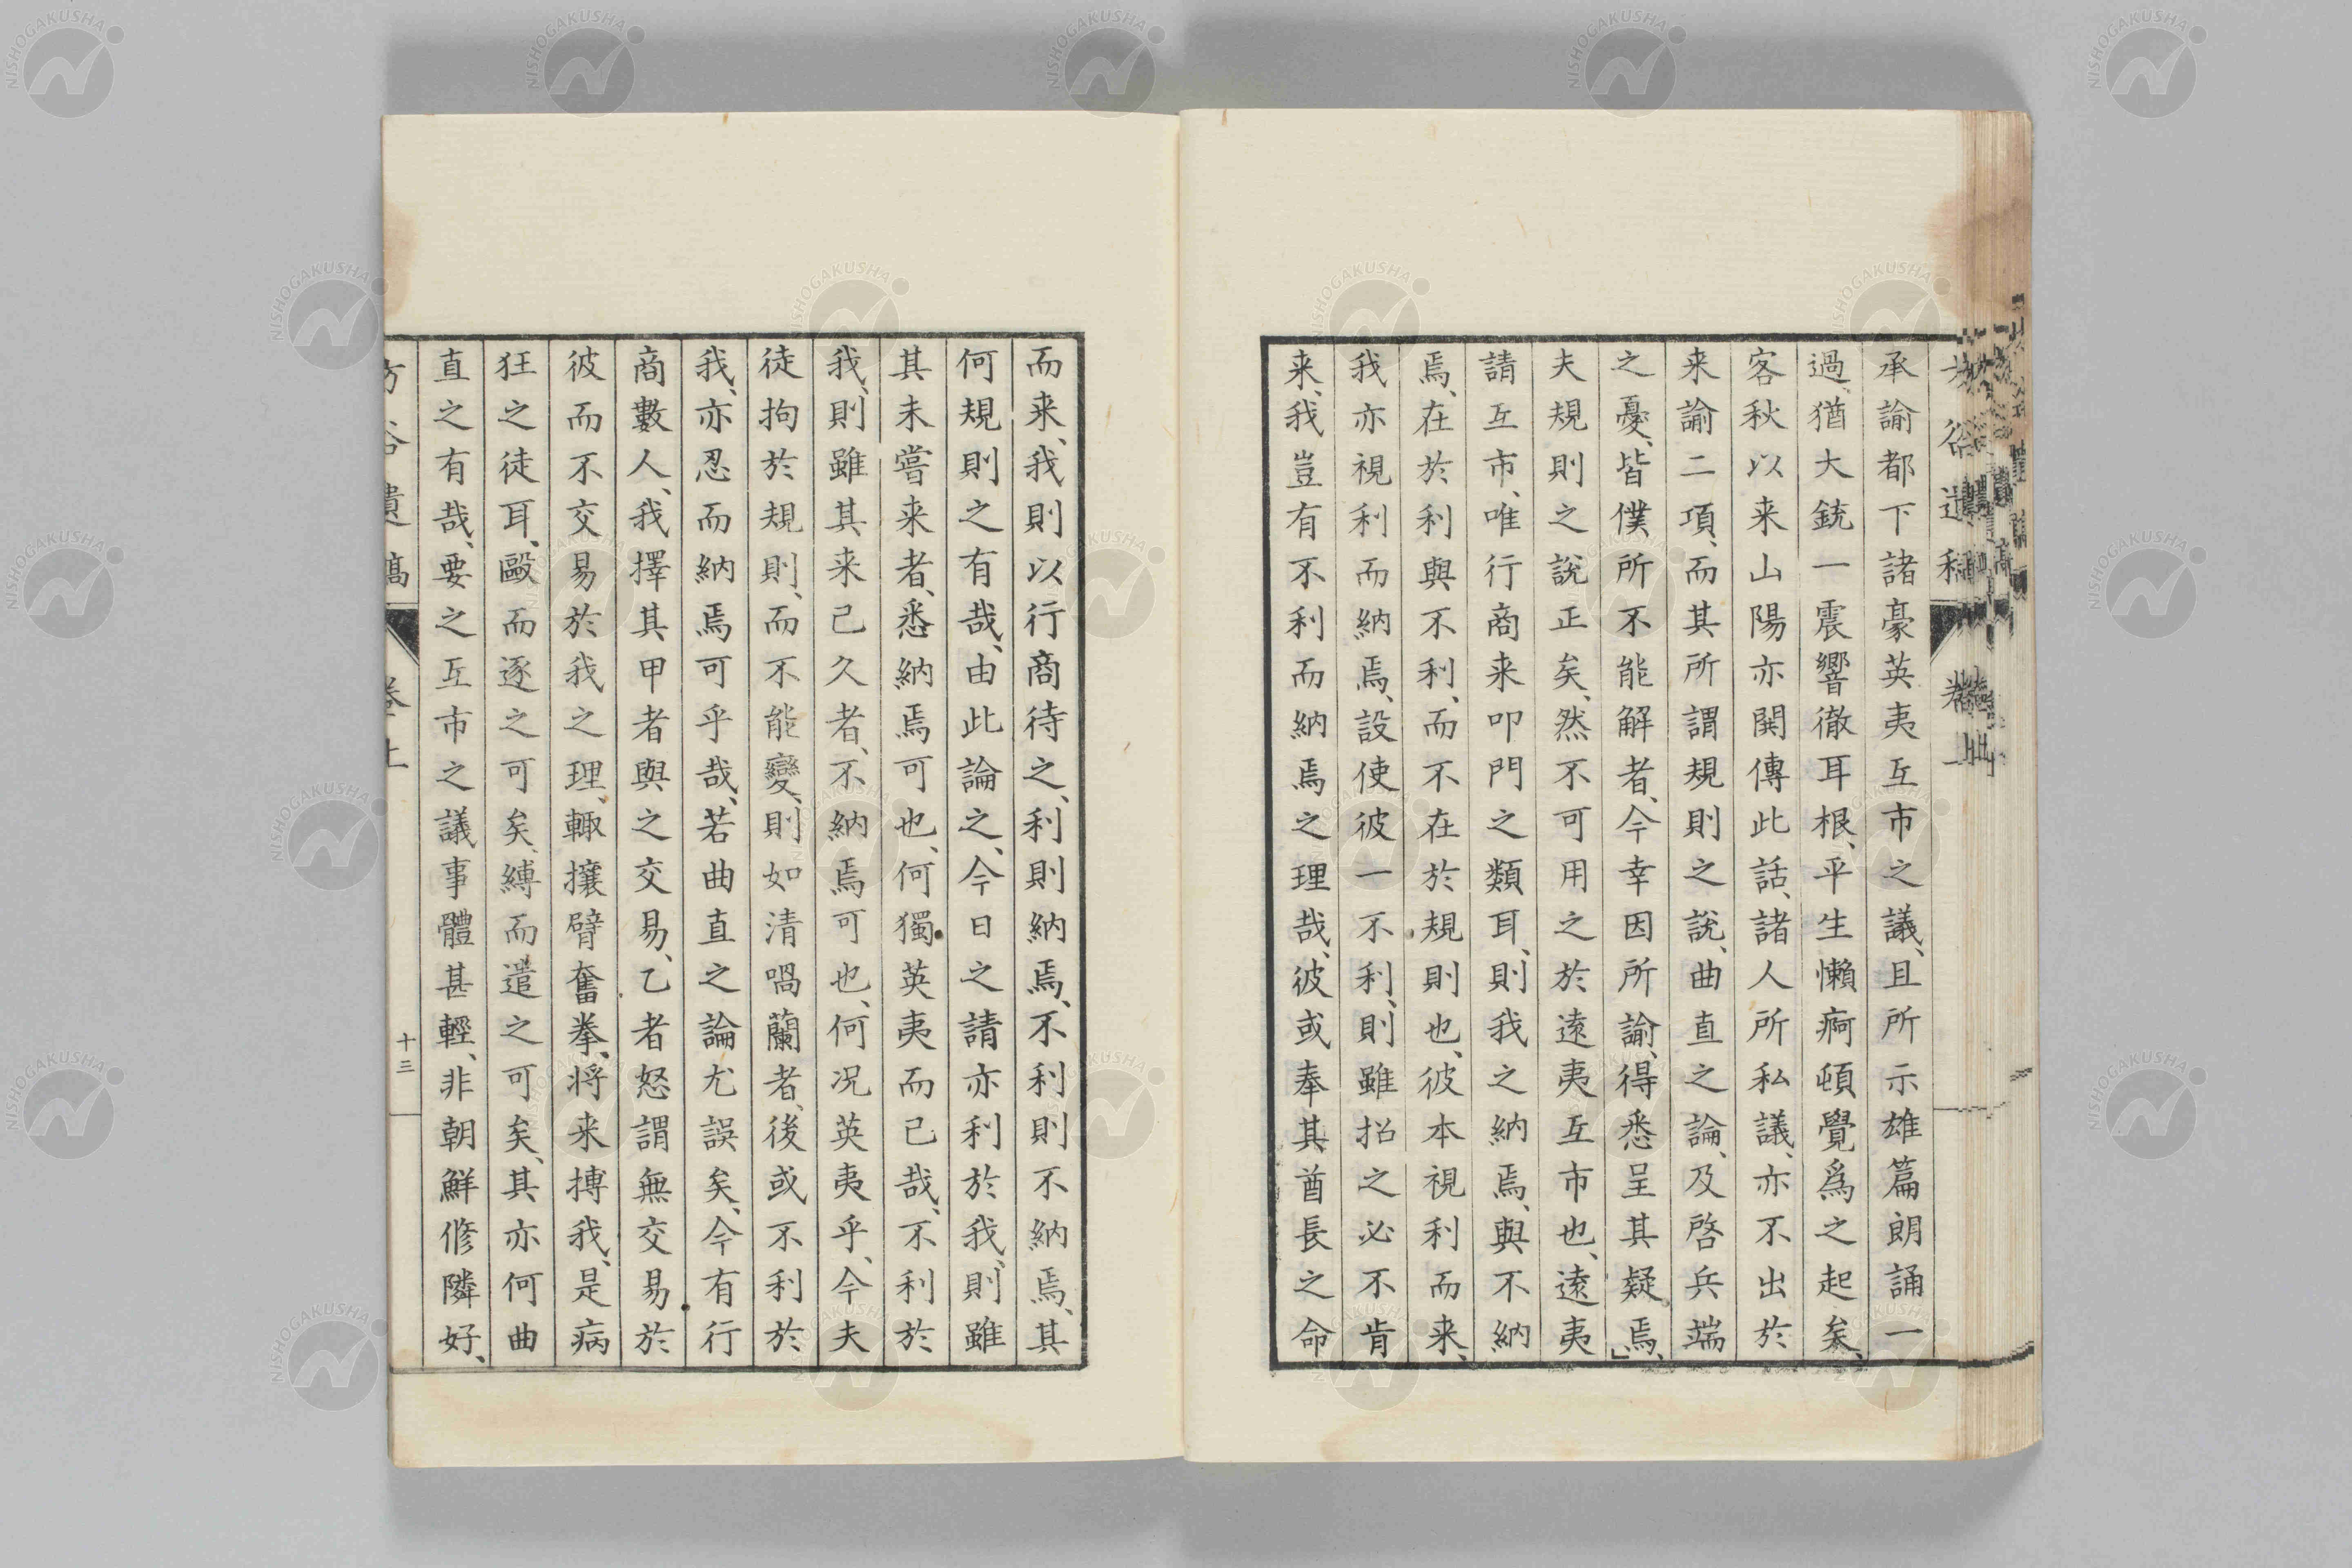 承諭都下諸豪英夷互市之議、且所示雄篇朗誦一
過、猶大銃一震響徹耳根、平生懶痾頓覺爲之起矣、
客秋以来山陽亦関傳此話、諸人所私議、亦不出於
来諭二項、而其所謂規則之說、曲直之論、及啓兵端
之憂、皆僕所不能解者、今幸因所諭、得悉呈其疑焉、」
夫規則之說正矣、然不可用之於遠夷互市也、遠夷
請互市、唯行商来叩門之類耳、則我之納焉、與不納
焉、在於利與不利、而不在於規則也、彼本視利而来、
我亦視利而納焉、設使彼一不利、則雖招之必不肯
来、我豈有不利而納焉之理哉、彼或奉其酋長之命
而来、我則以行商待之、利則納焉、不利則不納焉、其
何規則之有哉、由此論之、今日之請亦利於我、則雖
其未嘗来者、悉納焉可也、何獨英夷而已哉、不利於
我、則雖其来已久者、不納焉可也、何况英夷乎、今夫
徒拘於規則、而不能變、則如清喎蘭者、後或不利於
我、亦忍而納焉可乎哉、若曲直之論尤誤矣、今有行
商數人、我擇其甲者與之交易、乙者怒謂無交易於
彼而不交易於我之理、輙攘臂奮拳、将来搏我、是病
狂之徒耳、毆而逐之可矣、縛而遣之可矣、其亦何曲
直之有哉、要之互市之議事體甚輕、非朝鮮修隣好、
方谷遺稿
卷上
十三
NISHOGAKUSHA